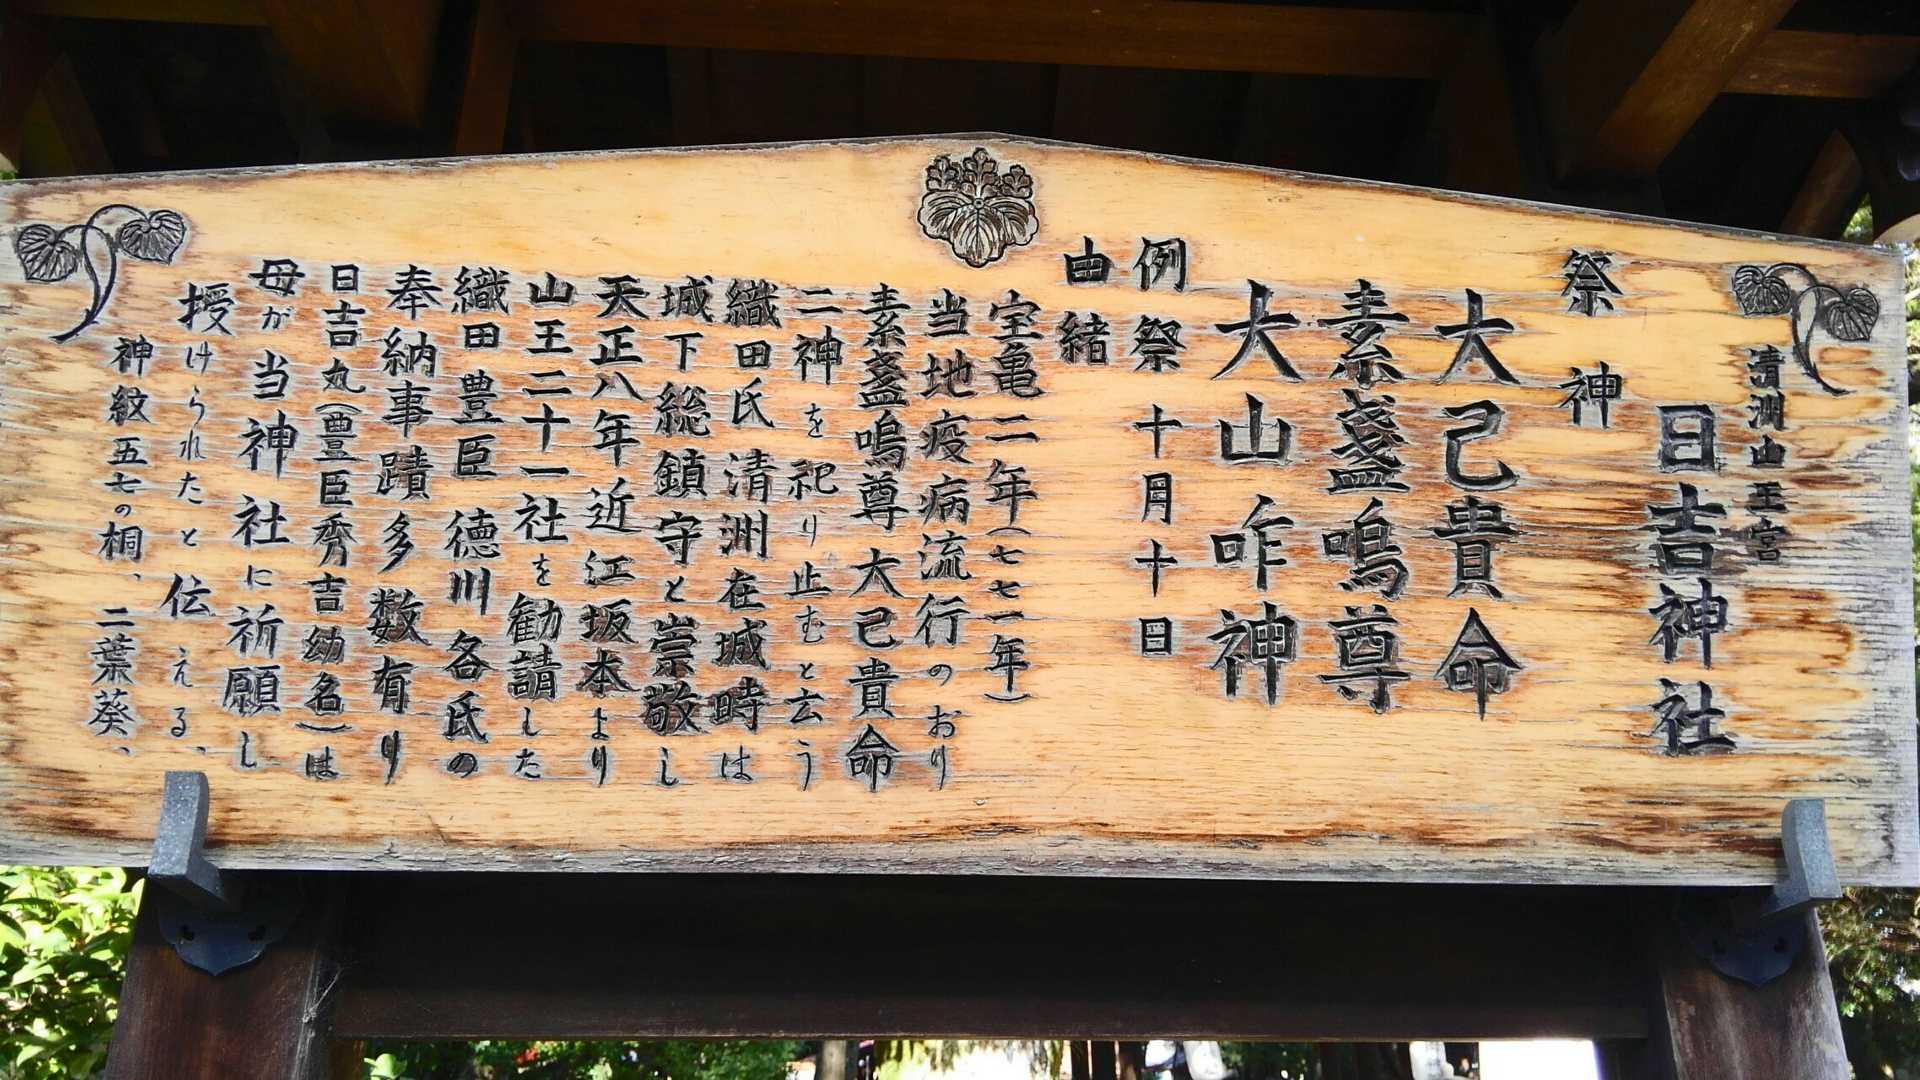 清洲山王宮
日吉神社
祭神
大己貴命
素盞嗚尊
大山咋神
例祭 十月十日
由緒
宝亀二年(七七一年)
当地疫病流行のおり
素盞嗚尊 大己貴命
二神を祀り止むと云う
織田氏 清洲在城時は
城下総鎮守と崇敬し
天正八年近江坂本より
山王二十一社を勧請した
織田 豊臣 徳川 各氏の
奉納事蹟多数有り
日吉丸(豊臣秀吉幼名)は
母が当神社に祈願し
授けられたと伝える、
神紋五七の桐、二葉葵、